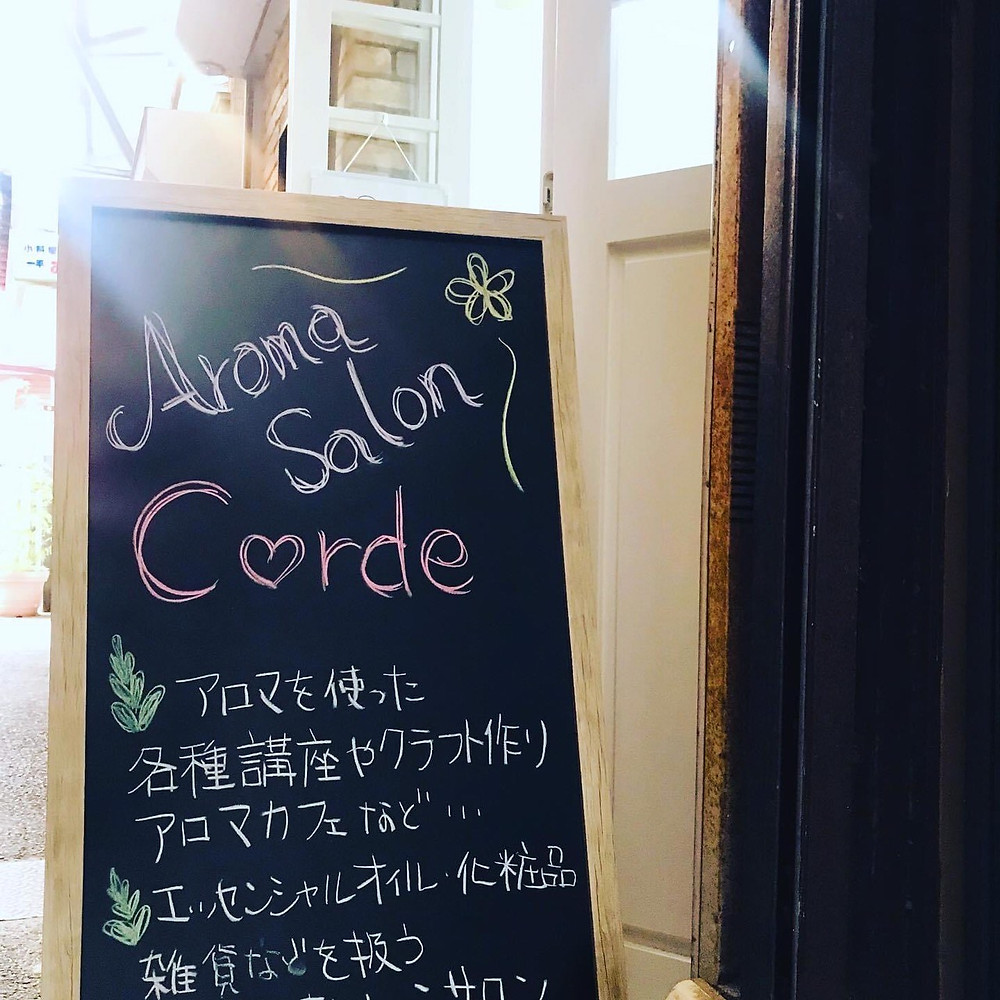 Aroma
Salon
Corde
アロマを使った
各種講座やクラフト作り
アロマカフェなど…
エッセンシャルオイル・化粧品
雑貨などを扱う
サロン